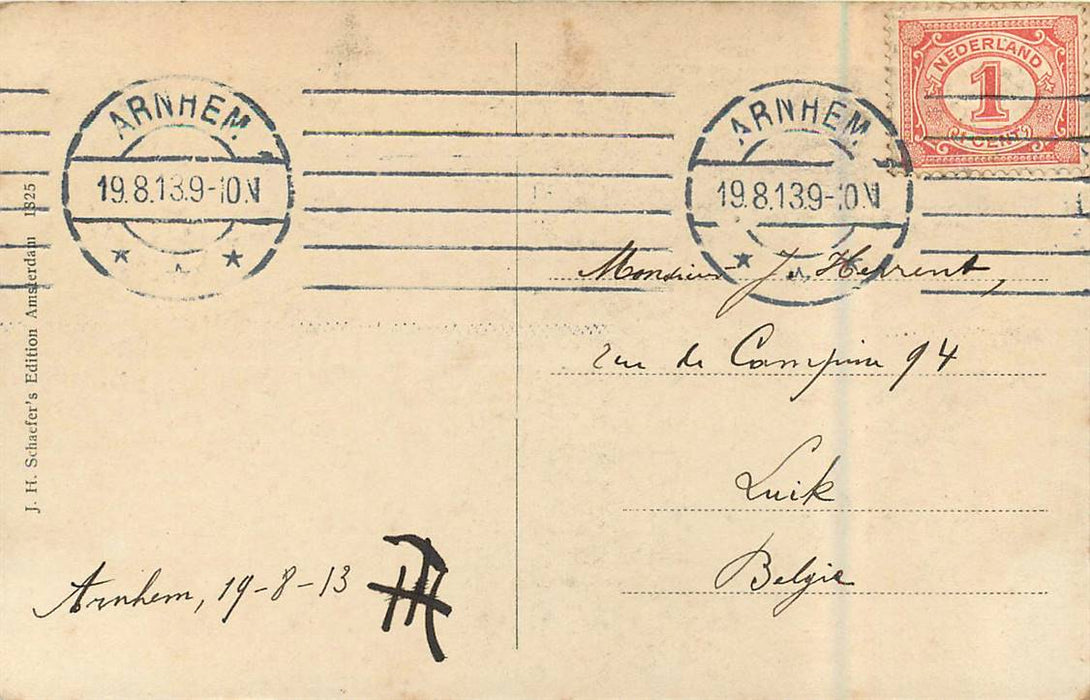 NEDERLAND
1
(1 CENT)
ARNHEM
19.8.13.9-10.N
ARNHEM
19.8.13.9-10.N
J. H. Schaefer's Edition Amsterdam 1825
Monsieur J. Herrent,
rue de Campine 94
Luik
Belgie
Arnhem, 19-8-13